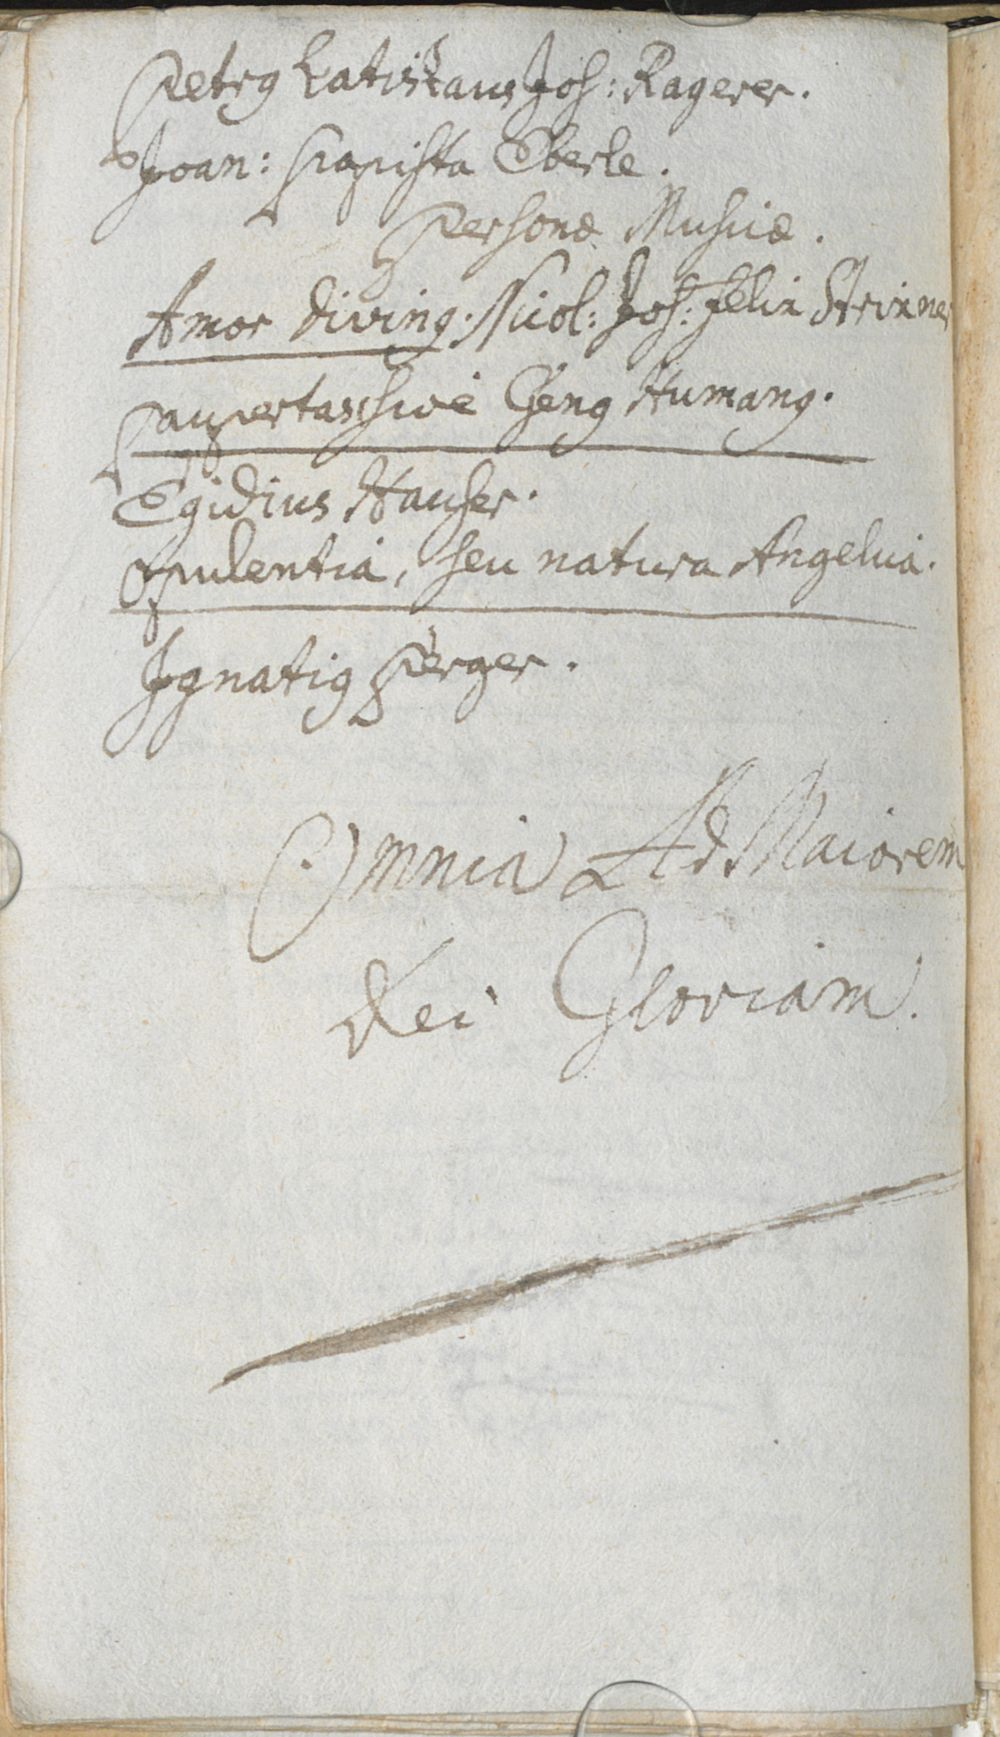 Petrg Latislaus Jos: Ragerer.
Joan: Papista Eberle.
Personæ Musicæ.
Amor diving. Nicol: Jos: Felix Strixner
Paupertas sive Geng Humang.
Egidius Hauser.
Opulentia, seu natura Angelica.
Ignatig Perger.
Omnia Ad Maiorem
Dei Gloriam.